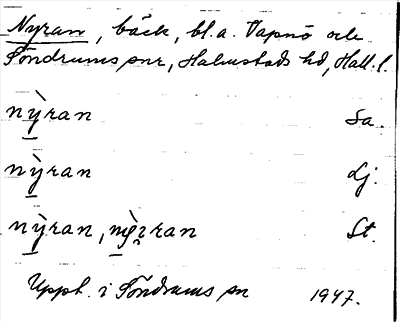 Nyran, bäck, bl.a. Vapnö och
Söndrums snr, Halmstads hd, Hall. l.
nỳran Sa.
nỳran Lj.
nỳran, St.
Uppt. i Söndrums sn 1947.